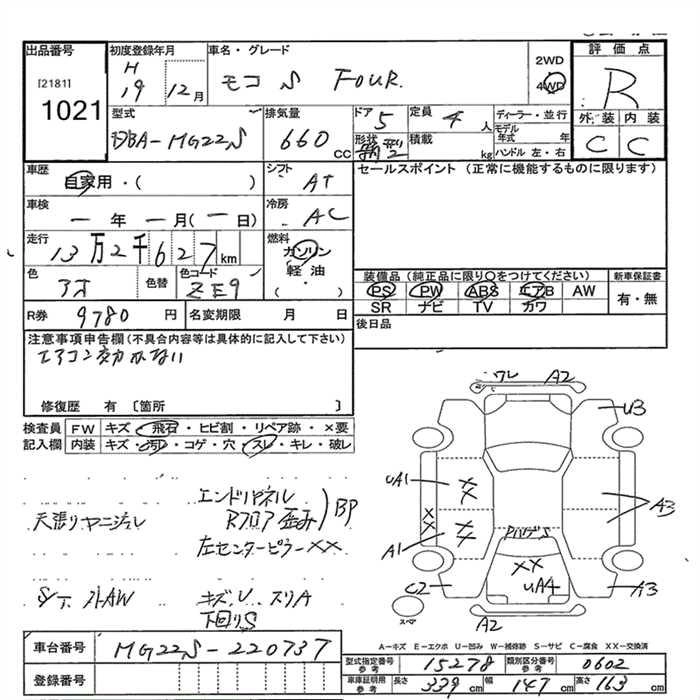 出品番号
[2181]
1021
初度登録年月
H
19
12月
車名・グレード
モコ S FOUR
2WD
4WD
評価点
R
型式
DBA-MG22S
排気量
660
CC
ドア 5
定員 4 人
形状
積載
kg
ディーラー・並行
モデル
年式 年
ハンドル 左・右
外装 内装
C C
車歴
自家用・( )
シフト
AT
セールスポイント (正常に機能するものに限ります)
車検
一年一月(一日)
冷房
AC
走行
13万2千627km
燃料
ガソリン
軽油・
( )
色
アオ
色替
色コード
ZE9
装備品(純正品に限り〇をつけてください)
新車保証書
PS PW ABS エアB AW
SR ナビ TV カワ
有・無
R券 9780 円
名変期限 月 日
後日品
注意事項申告欄(不具合内容等は具体的に記入して下さい)
エアコン効かない
修復歴 有 〔箇所 〕
検査員
記入欄
FW キズ・飛石・ヒビ割・リペア跡・×要
内装 キズ・汚れ・コゲ・穴・スレ・キレ・破レ
エンドパネル
Rフロア歪み
BP
天張りヤニヨゴレ
左センターピラーXX
外AW
キズ、U、スリA
下回りS
ワレ A2
U3
UA1
XX
XX
XX
A3
A1
PハゲS
XX
UA4
C2
A3
スペア
A2
A−キズ E−エクボ U−凹み W−補修跡 S−サビ C−腐食 XX−交換済
車台番号
MG22S-220737
登録番号
型式指定番号
参考
15278
類別区分番号
参考
0602
車庫証明用
参考
長さ 339 cm
幅 147 cm
高さ 163 cm